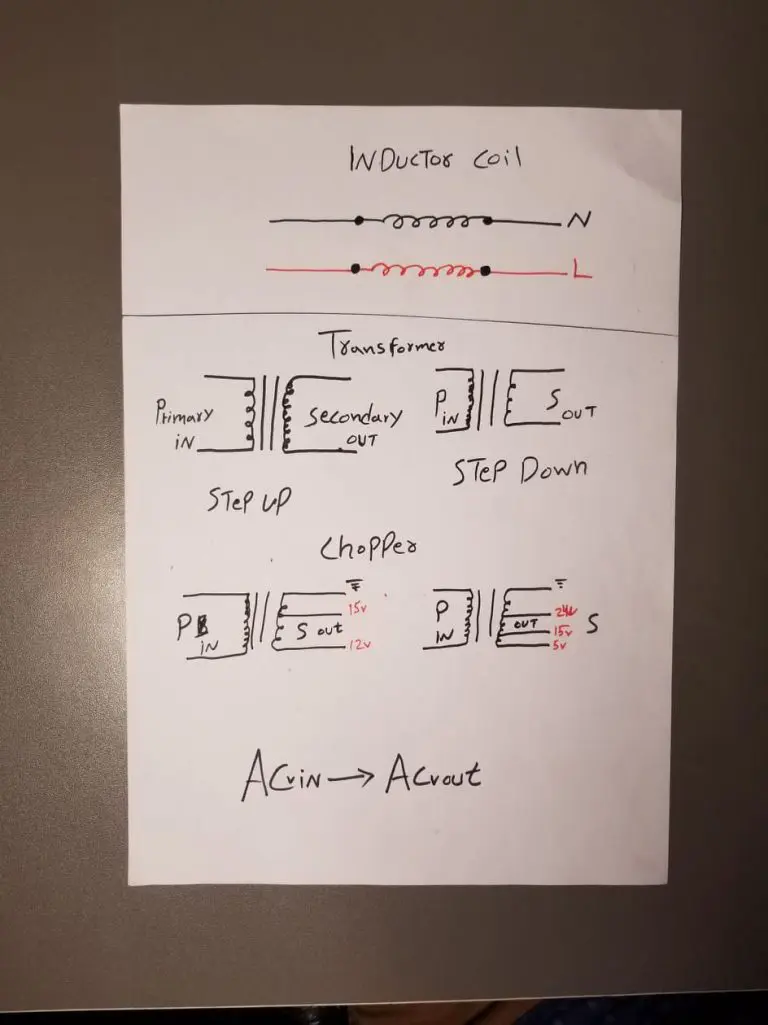 INDuctor coil
N
L
Transformer
Primary
IN
Secondary
OUT
STeP UP
P
IN
S
OUT
STeP DowN
Chopper
P
IN
S out
15v
12v
P
IN
OUT
24v
15v
5v
S
ACvin → ACvout